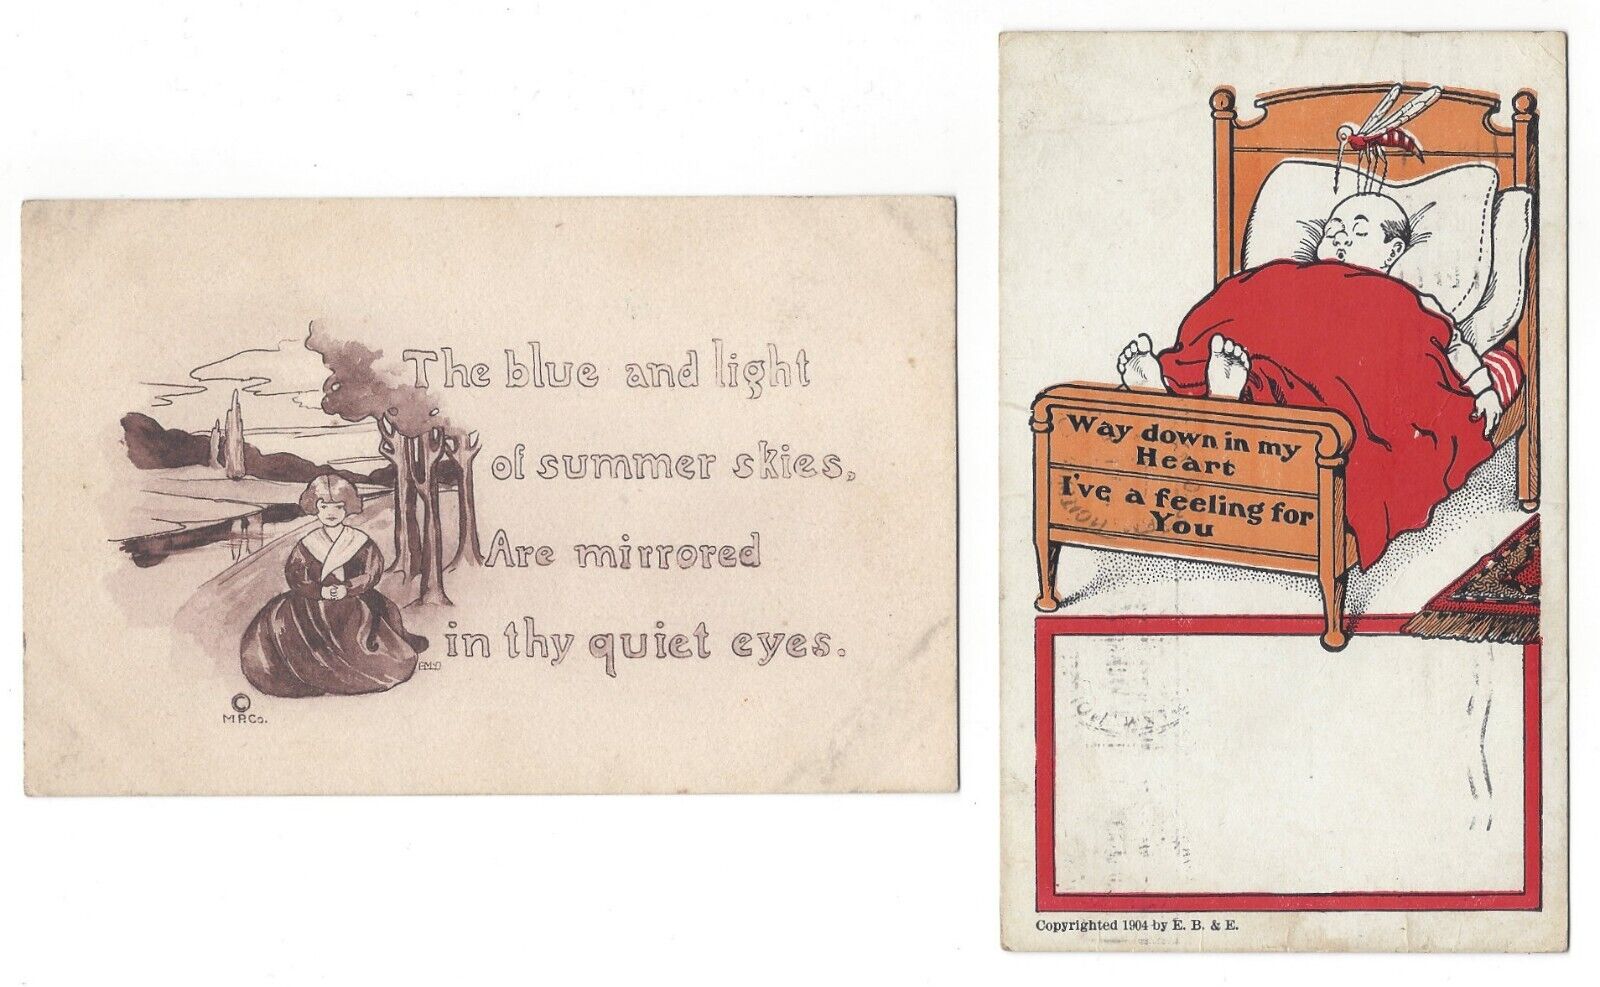 The blue and light
of summer skies,
Are mirrored
in thy quiet eyes.
© M.P.Co.
Way down in my
Heart
I've a feeling for
You
Copyrighted 1904 by E. B. & E.